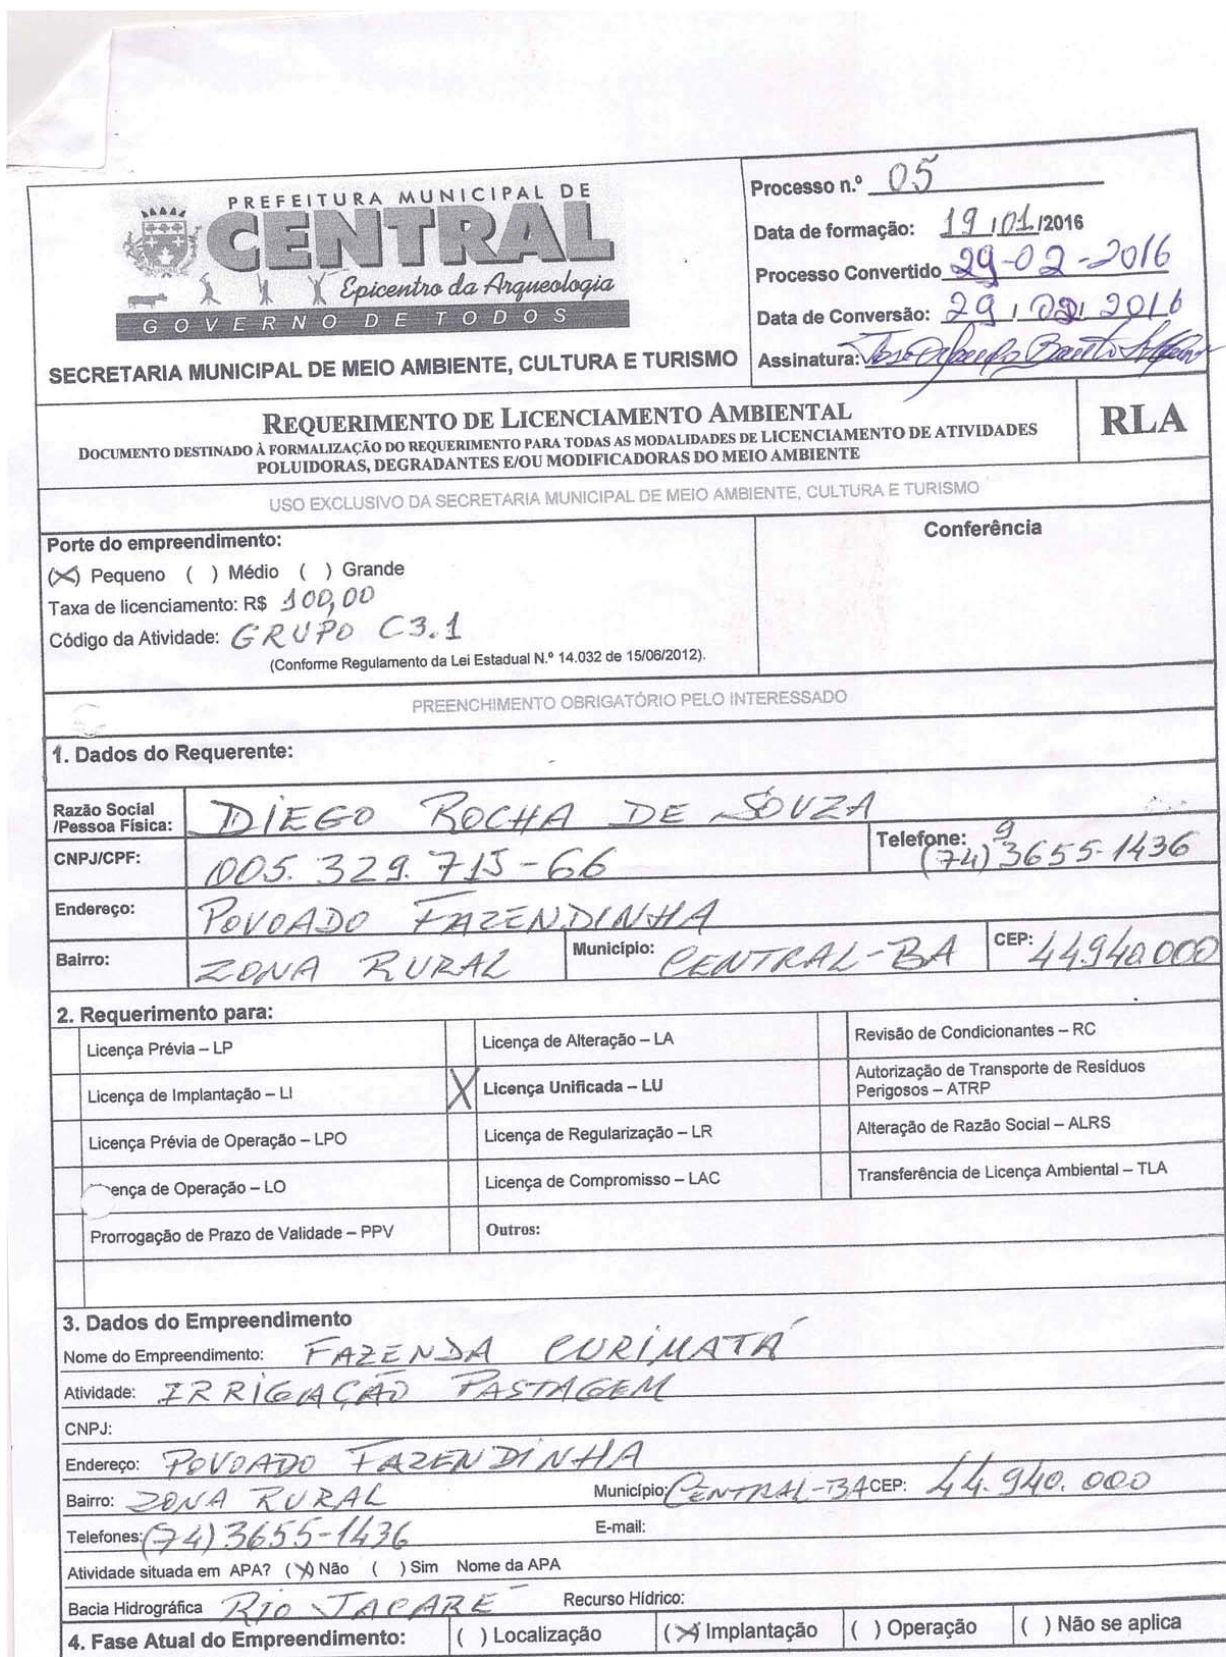 PREFEITURA MUNICIPAL DE
CENTRAL
Epicentro da Arqueologia
GOVERNO DE TODOS
SECRETARIA MUNICIPAL DE MEIO AMBIENTE, CULTURA E TURISMO
Processo n.º 05
Data de formação: 19/01/2016
Processo Convertido 29-02-2016
Data de Conversão: 29/02/2016
Assinatura:
REQUERIMENTO DE LICENCIAMENTO AMBIENTAL
DOCUMENTO DESTINADO À FORMALIZAÇÃO DO REQUERIMENTO PARA TODAS AS MODALIDADES DE LICENCIAMENTO DE ATIVIDADES
POLUIDORAS, DEGRADANTES E/OU MODIFICADORAS DO MEIO AMBIENTE
RLA
USO EXCLUSIVO DA SECRETARIA MUNICIPAL DE MEIO AMBIENTE, CULTURA E TURISMO
Porte do empreendimento:
(X) Pequeno ( ) Médio ( ) Grande
Taxa de licenciamento: R$ 100,00
Código da Atividade: GRUPO C3.1
(Conforme Regulamento da Lei Estadual N.º 14.032 de 15/06/2012).
Conferência
PREENCHIMENTO OBRIGATÓRIO PELO INTERESSADO
1. Dados do Requerente:
Razão Social
/Pessoa Física: DIEGO ROCHA DE SOUZA
CNPJ/CPF: 005.329.715-66 Telefone: (74) 9 3655-1436
Endereço: POVOADO FAZENDINHA
Bairro: ZONA RURAL Município: CENTRAL-BA CEP: 44940.000
2. Requerimento para:
Licença Prévia – LP Licença de Alteração – LA Revisão de Condicionantes – RC
Licença de Implantação – LI X Licença Unificada – LU Autorização de Transporte de Resíduos
Perigosos – ATRP
Licença Prévia de Operação – LPO Licença de Regularização – LR Alteração de Razão Social – ALRS
ença de Operação – LO Licença de Compromisso – LAC Transferência de Licença Ambiental – TLA
Prorrogação de Prazo de Validade – PPV Outros:
3. Dados do Empreendimento
Nome do Empreendimento: FAZENDA CURIMATÁ
Atividade: IRRIGAÇÃO PASTAGEM
CNPJ:
Endereço: POVOADO FAZENDINHA
Bairro: ZONA RURAL Município: CENTRAL-BA CEP: 44.940.000
Telefones: (74) 3655-1436 E-mail:
Atividade situada em APA? (X) Não ( ) Sim Nome da APA
Bacia Hidrográfica RIO JACARÉ Recurso Hídrico:
4. Fase Atual do Empreendimento: ( ) Localização (X) Implantação ( ) Operação ( ) Não se aplica